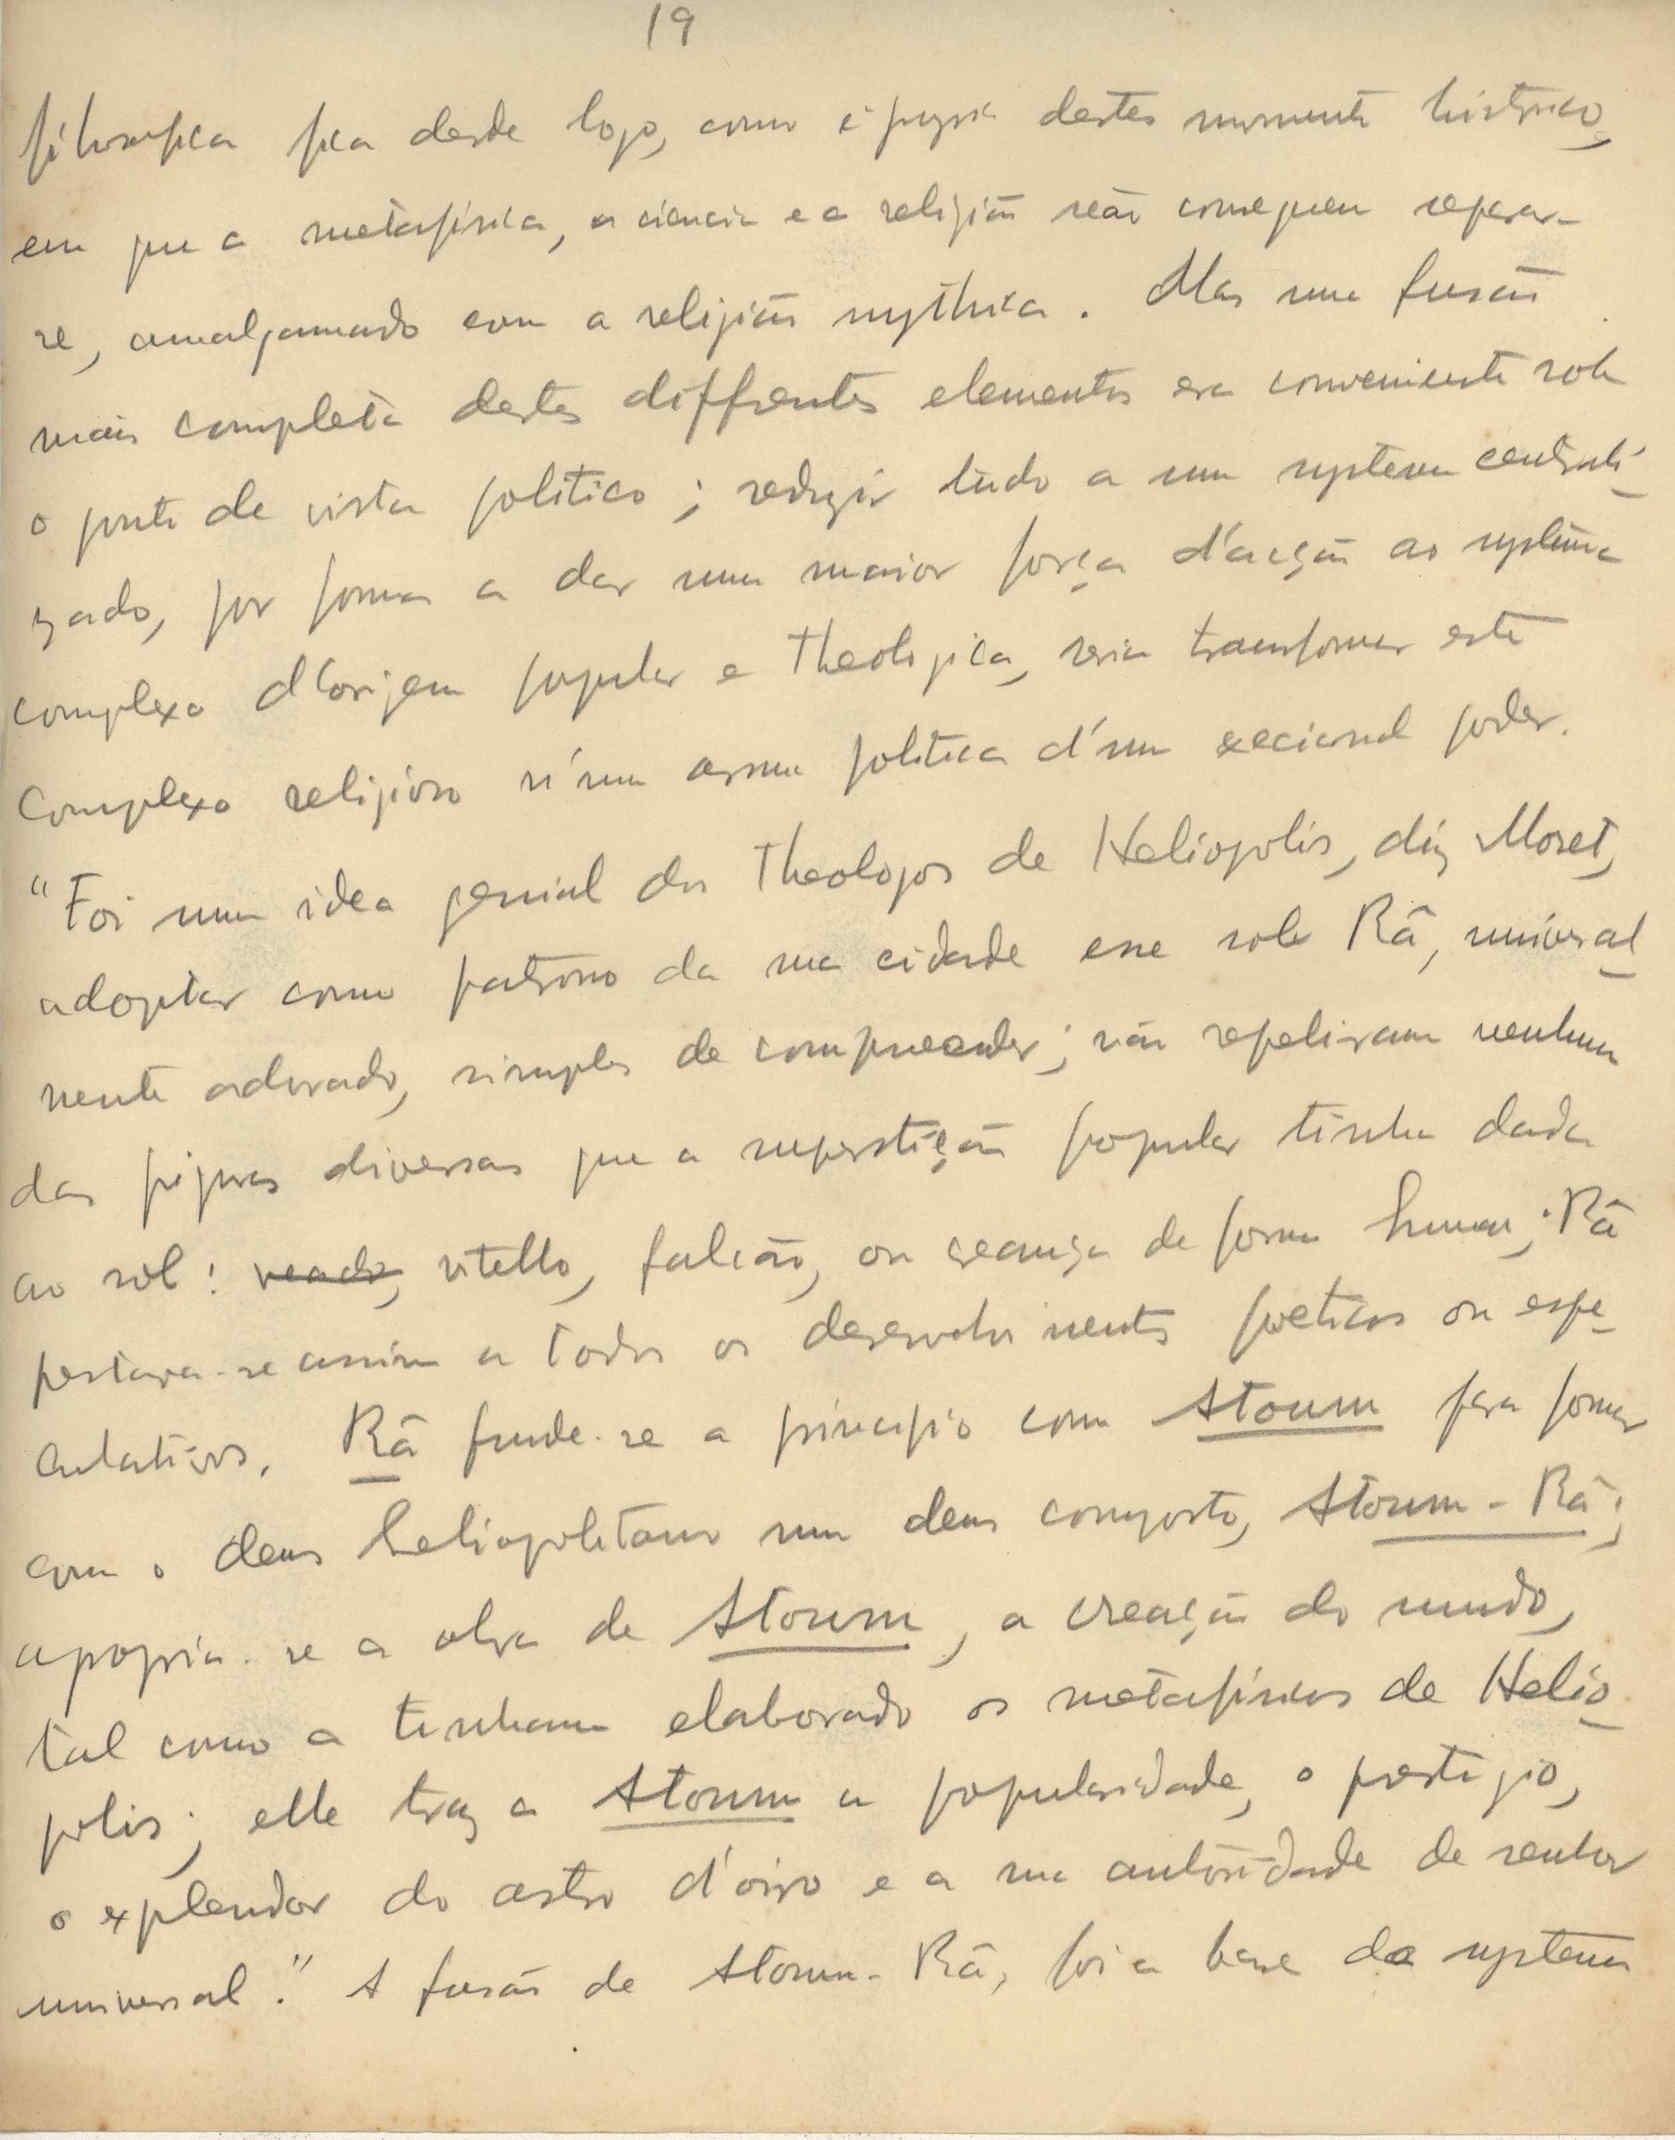 19
filosofica fica desde logo, como é propria destes momentos historicos
em que a metafisica, a ciencia e a religião não conseguem separar-
se, amalgamado com a religião mythica. Mas uma fusão
mais completa destes diffrentes elementos era conveniente sob
o ponto de vista politico; reduzir tudo a um systema centrali-
zado, por forma a dar uma maior força d'acção ao systema
complexo d'origem popular e theologica, seria transformar este
complexo religioso n'uma arma politica d'um excecional poder.
"Foi uma idea genial dos theologos de Heliopolis, diz Moret,
adoptar como patrono da sua cidade esse sole Râ, universal-
mente adorado, simples de comprehender; não repeliram nenhuma
das figuras diversas que a superstição popular tinha dada
ao sol: veado, vitello, falcão, ou creança de forma humana; Râ
prestava-se assim a todos os desenvolvimentos poeticos ou espe-
culativos. Râ funde-se a principio com Atoum para formar
com o deus heliopolitano um deus composto, Atoum-Râ;
apropria-se a obra de Atoum, a creação do mundo,
tal como a tinham elaborado os metafisicos de Helio-
polis; elle traz a Atoum a popularidade, o prestigio,
o explendor do astro d'oiro e a sua autoridade de senhor
universal." A fusão de Atoum-Râ, foi a base do systema